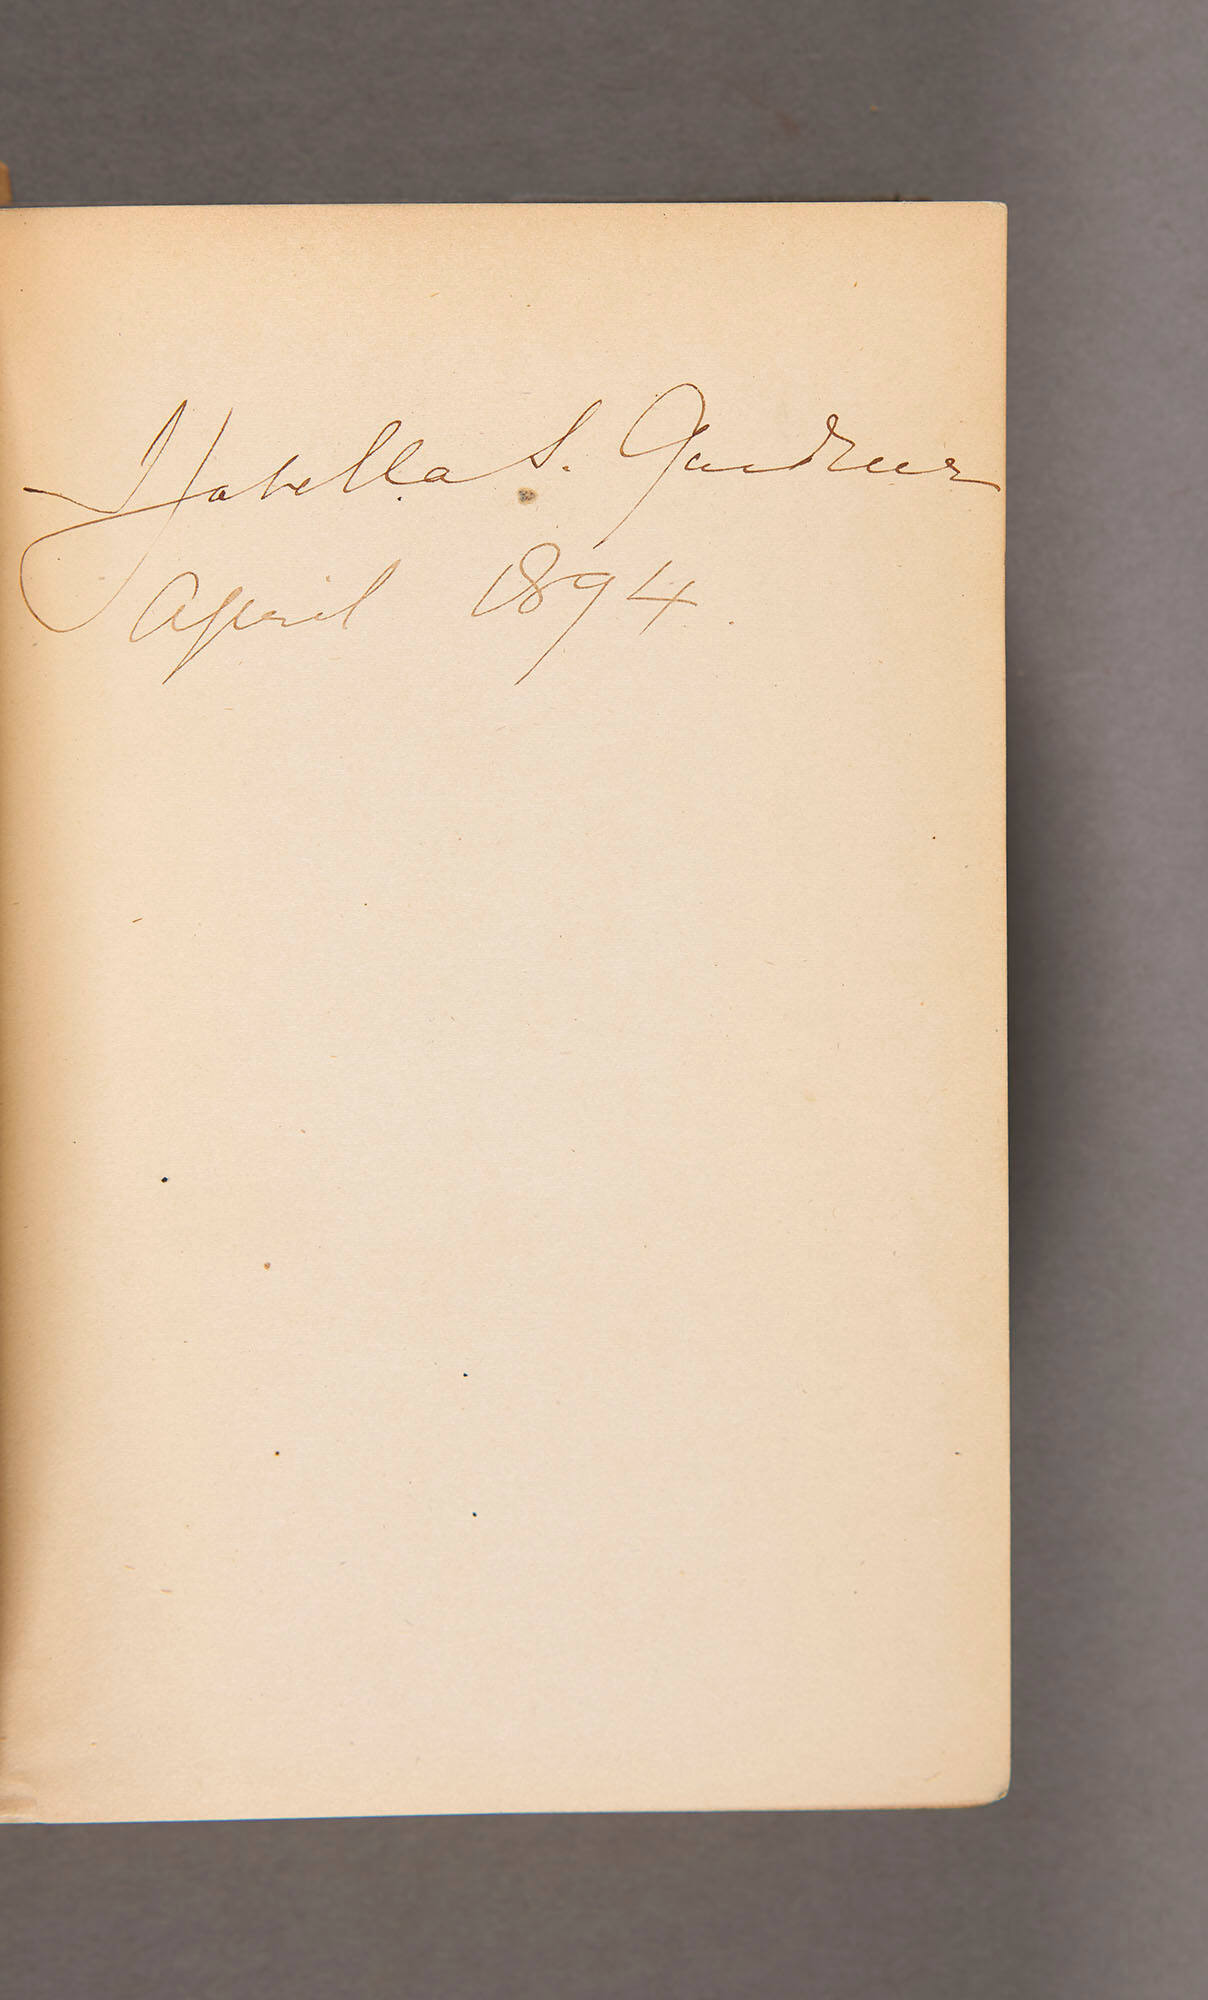 Isabella S. Gardner
April 1894.